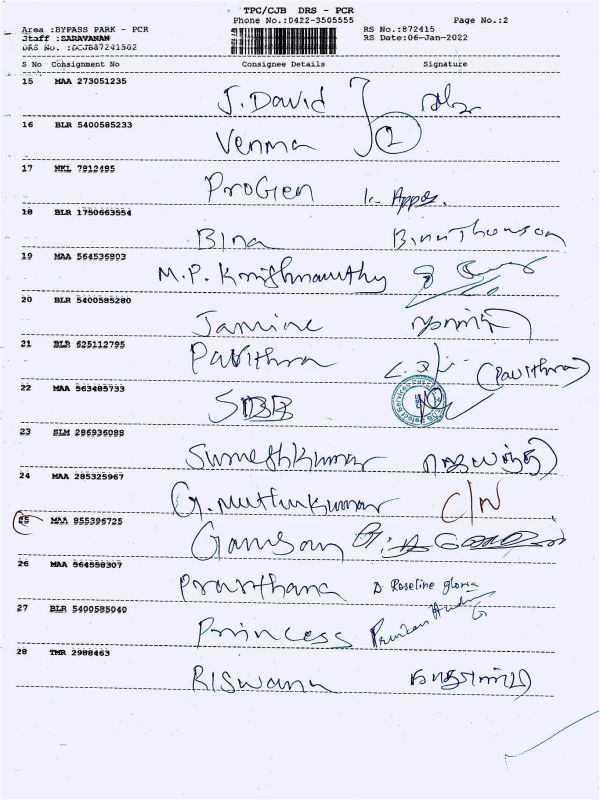 TPC/CJB DRS - PCR
Phone No.:0422-3505555 Page No.:2
Area :BYPASS PARK - PCR RS No.:872415
Staff :SARAVANAN RS Date:06-Jan-2022
DRS No. :DCJB87241502
S No Consignment No Consignee Details Signature
15 MAA 273051235
J. David
16 BLR 5400585233
Venma 2
17 NKL 7812485
ProGien
18 BLR 1750663554
Bina Binu Thomson
19 MAA 564536903
M.P. Krishnamurthy
20 BLR 5400585280
Jamine
21 BLR 625112795
Pavithra (Pavithra)
22 MAA 563485733
23 SLM 286936088
Sumeshkumar
24 MAA 285325967
G. muthukumar C/N
25 MAA 955396725
Gamson
26 MAA 564558307
Prarthana D Roseline gloria
27 BLR 5400585040
Princess
28 TMR 2988463
Riswana